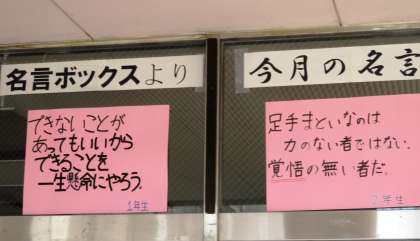 名言ボックスより
できないことが
あってもいいから
できることを
一生懸命にやろう。
1年生
今月の名言
足手まといなのは
力のない者ではない。
覚悟の無い者だ。
2年生